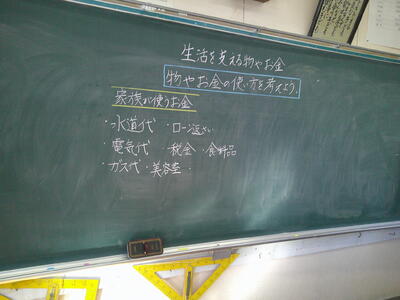 生活を支える物やお金
物やお金の使い方を考えよう。
家族が使うお金
・水道代 ・ローン返さい
・電気代 ・税金 ・食料品
・ガス代・美容室・